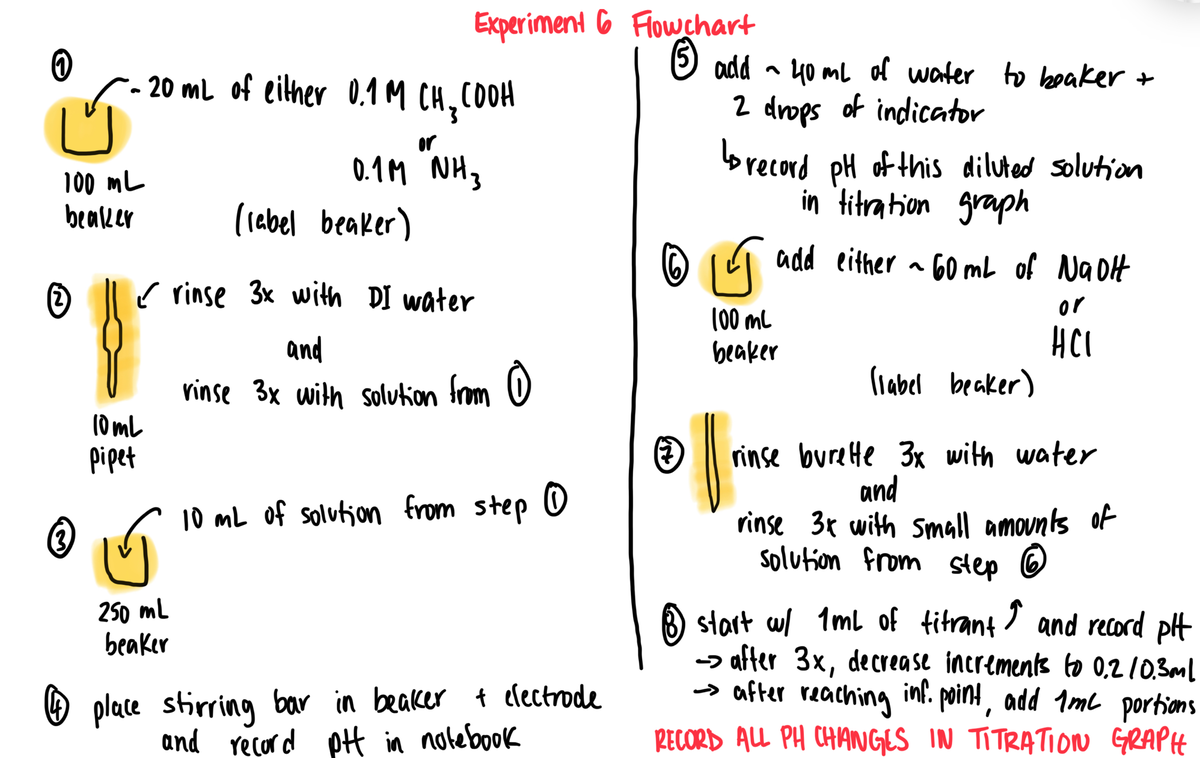 Experiment 6 Flowchart
①
~ 20 mL of either 0.1 M CH₃COOH
or
0.1 M NH₃
100 mL
beaker
(label beaker)
②
rinse 3x with DI water
and
rinse 3x with solution from ①
10 mL
pipet
③
10 mL of solution from step ①
250 mL
beaker
④ place stirring bar in beaker + electrode
and record pH in notebook
⑤ add ~ 40 mL of water to beaker +
2 drops of indicator
↳ record pH of this diluted solution
in titration graph
⑥
add either ~ 60 mL of NaOH
or
HCl
100 mL
beaker
(label beaker)
⑦
rinse burette 3x with water
and
rinse 3x with small amounts of
solution from step ⑥
⑧ start w/ 1mL of titrant ↑ and record pH
→ after 3x, decrease increments to 0.2/0.3mL
→ after reaching inf. point, add 1mL portions
RECORD ALL PH CHANGES IN TITRATION GRAPH